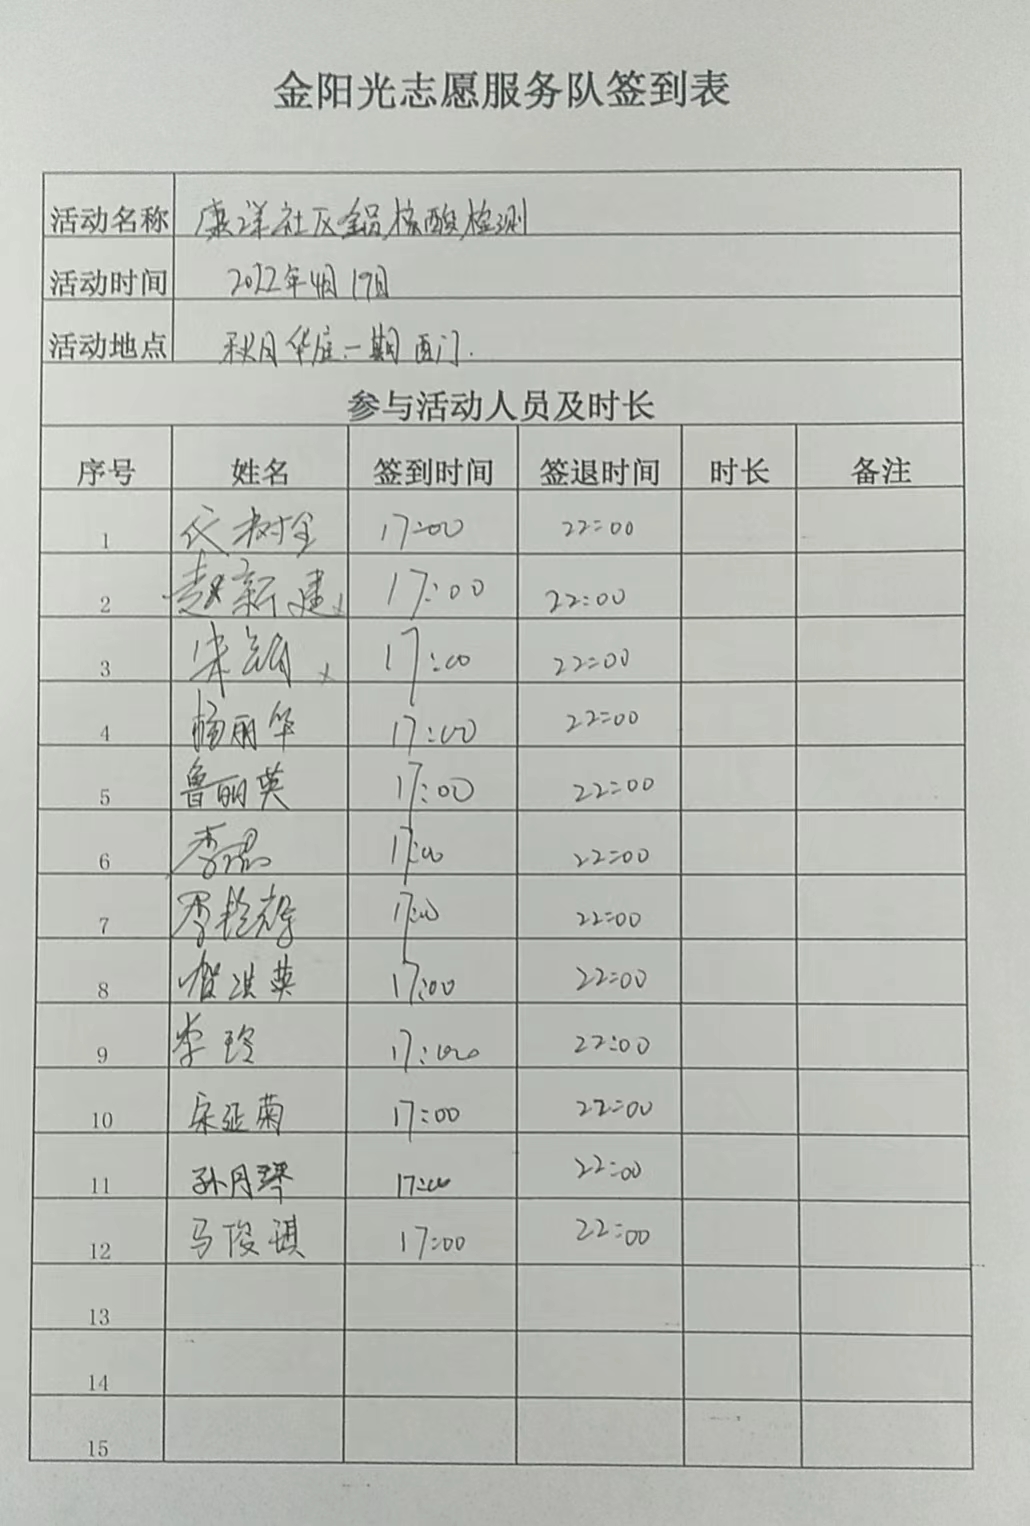 金阳光志愿服务队签到表
活动名称 康洋社区全员核酸检测
活动时间 2022年4月19日
活动地点 秋月华庭一期西门.
参与活动人员及时长
序号 姓名 签到时间 签退时间 时长 备注
1 17:00 22:00
2 赵新建 17:00 22:00
3 17:00 22:00
4 杨丽华 17:00 22:00
5 鲁丽英 17:00 22:00
6 17:00 22:00
7 17:00 22:00
8 贺洪英 17:00 22:00
9 李玲 17:00 22:00
10 宋延菊 17:00 22:00
11 孙月琴 17:00 22:00
12 马俊琪 17:00 22:00
13
14
15